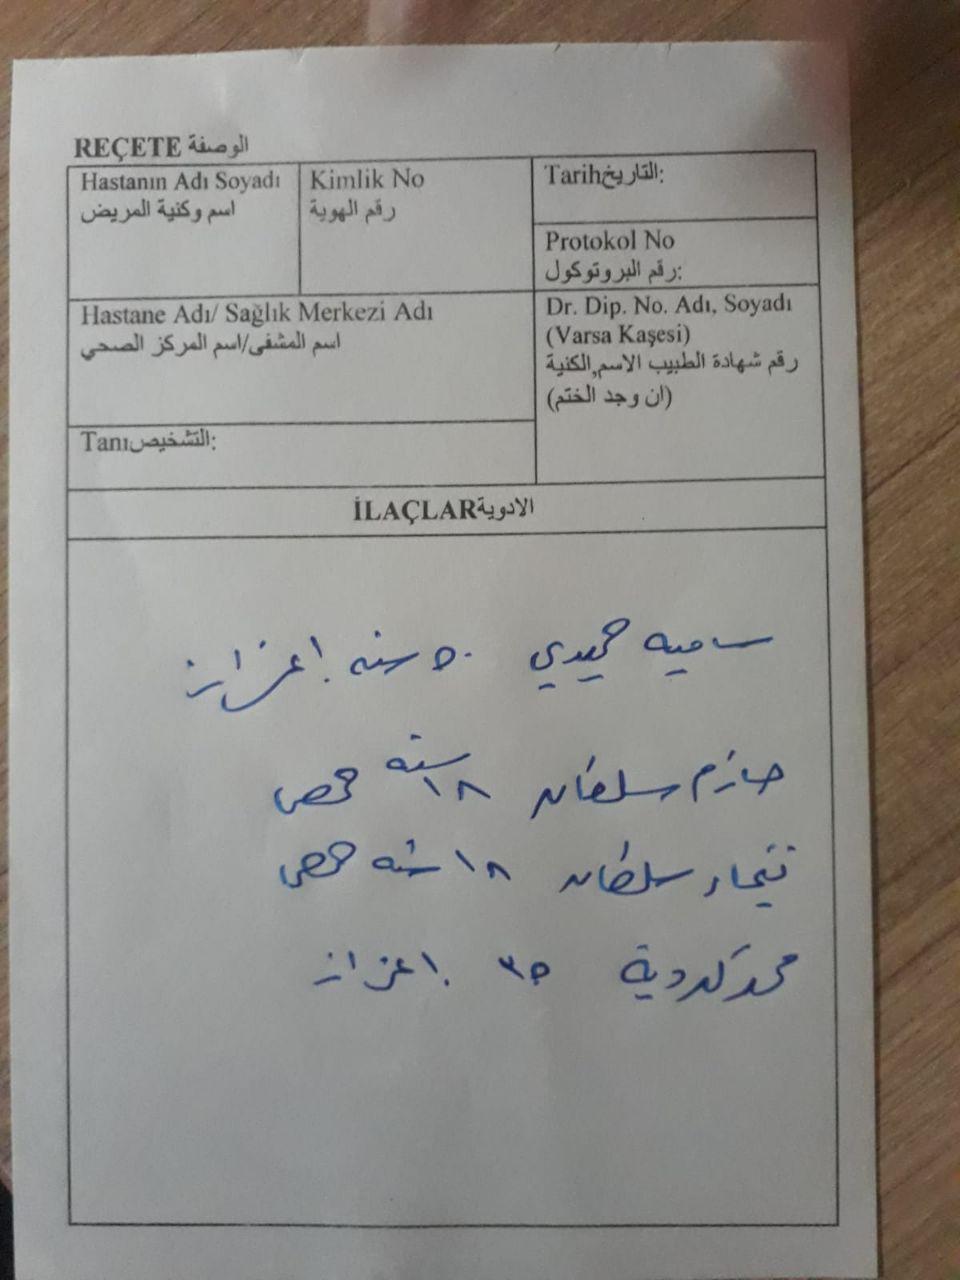 REÇETE الوصفة
Hastanın Adı Soyadı
اسم وكنية المريض
Kimlik No
رقم الهوية
Tarihالتاريخ:
Protokol No
رقم البروتوكول:
Hastane Adı/ Sağlık Merkezi Adı
اسم المشفى/اسم المركز الصحي
Dr. Dip. No. Adı, Soyadı
(Varsa Kaşesi)
رقم شهادة الطبيب الاسم,الكنية
(ان وجد الختم)
Tanıالتشخيص:
İLAÇLARالادوية
ساميه حميدي ٥٠ سنه اعزاز
حازم سلطان ١٨ سنه حمص
سلطان ١٨ سنه حمص
محمد كردية ٣٥ اعزاز